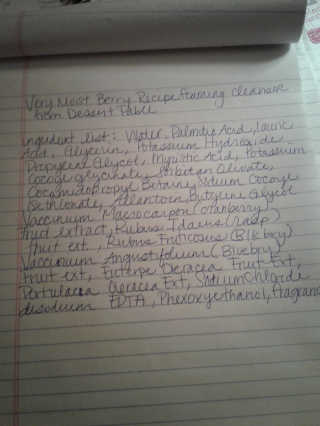 Very Moist Berry Recipe foaming cleanser
from Dessert Table
ingredient list: Water, Palmitic Acid, Lauric
Acid, Glycerin, Potassium Hydroxide
Propylene Glycol, Myristic Acid, Potassium
Cocoyl glycinate, Sorbitan Olivate,
Cocamidopropyl Betaine, Sodium Cocoyl
Isethionate, Allantoin, Butylene Glycol
Vaccinium Macrocarpon (cranberry)
fruit extract, Rubus Idaeus (rasp)
fruit ext, Rubus Fruticosus (Blkbry)
Vaccinium Angustifolium (Bluebry)
Fruit ext, Euterpe Oleracea Fruit Ext,
Portulaca Oleracea Ext, Sodium Chloride
disodium EDTA, Phexoxyethanol, Fragrance